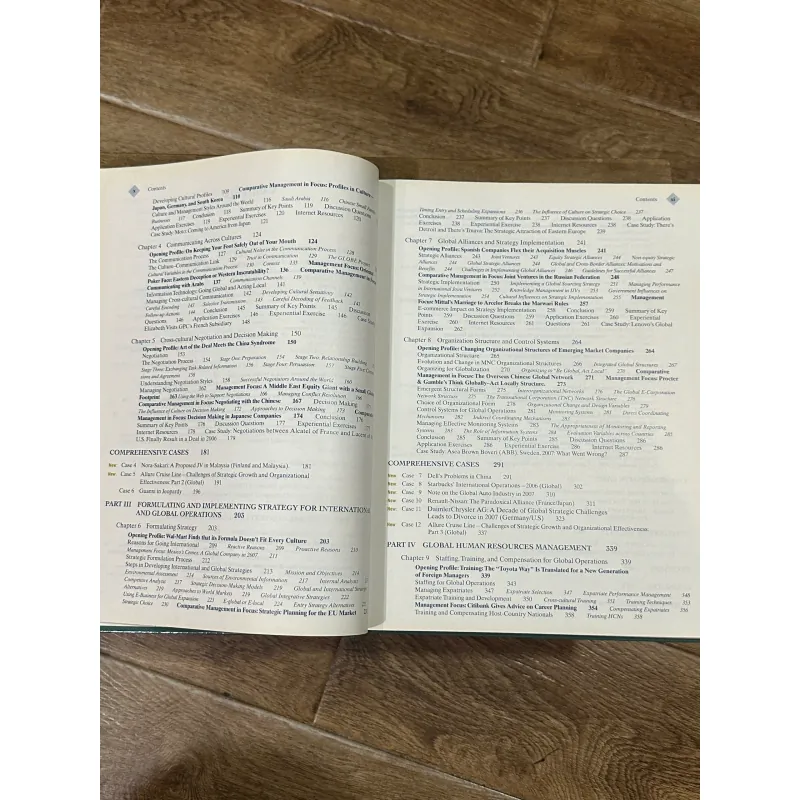 x Contents
Developing Cultural Profiles 109 Comparative Management in Focus: Profiles in Culture
Japan, Germany, and South Korea 110
Culture and Management Styles Around the World 116 Saudi Arabia 116 Chinese Small Family
Businesses 117 Conclusion 118 Summary of Key Points 119 Discussion Questions
Application Exercises 118 Experiential Exercises 120 Internet Resources 120
Case Study: Moto: Coming to America from Japan 121
Chapter 4 Communicating Across Cultures 124
Opening Profile: On Keeping Your Foot Safely Out of Your Mouth 124
The Communication Process 127 Cultural Noise in the Communication Process 128
The Culture–Communication Link 129 Trust in Communication 129 The GLOBE Project
Cultural Variables in the Communication Process 130 Context 135 Management Focus: Oriental
Poker Face: Eastern Deception or Western Inscrutability? 136 Comparative Management in Focus:
Communicating with Arabs 137 Communication Channels 139
Information Technology: Going Global and Acting Local 141
Managing Cross-cultural Communication 142 Developing Cultural Sensitivity
Careful Encoding 143 Selective Transmission 143 Careful Decoding of Feedback
Follow-up Actions 144 Conclusion 145 Summary of Key Points 145 Discussion
Questions 146 Application Exercises 146 Experiential Exercise 146 Case Study:
Elizabeth Visits GPC's French Subsidiary 148
Chapter 5 Cross-cultural Negotiation and Decision Making 150
Opening Profile: Art of the Deal Meets the China Syndrome 150
Negotiation 153
The Negotiation Process 154 Stage One: Preparation 154 Stage Two: Relationship Building
Stage Three: Exchanging Task-Related Information 156 Stage Four: Persuasion 157 Stage Five: Concessions
and Agreement 158
Understanding Negotiation Styles 158 Successful Negotiators Around the World 160
Managing Negotiation 162 Management Focus: A Middle East Equity Giant with a Small Global
Footprint 163 Using the Web to Support Negotiations 166 Managing Conflict Resolution 166
Comparative Management in Focus: Negotiating with the Chinese 167 Decision Making
The Influence of Culture on Decision Making 172 Approaches to Decision Making 173 Comparative
Management in Focus: Decision Making in Japanese Companies 174 Conclusion 176
Summary of Key Points 176 Discussion Questions 177 Experiential Exercises
Internet Resources 178 Case Study: Negotiations between Alcatel of France and Lucent of
U.S. Finally Result in a Deal in 2006 178
COMPREHENSIVE CASES 181
New Case 4 Nora-Sakari: A Proposed JV in Malaysia (Finland and Malaysia). 182
New Case 5 Allure Cruise Line – Challenges of Strategic Growth and Organizational
Effectiveness: Part 2 (Global) 191
Case 6 Guanxi in Jeopardy 196
PART III FORMULATING AND IMPLEMENTING STRATEGY FOR INTERNATIONAL
AND GLOBAL OPERATIONS 203
Chapter 6 Formulating Strategy 203
Opening Profile: Wal-Mart Finds that its Formula Doesn't Fit Every Culture 203
Reasons for Going International 209 Reactive Reasons 209 Proactive Reasons 210
Management Focus: Mexico's Cemex: A Global Company in 2007 211
Strategic Formulation Process 212
Steps in Developing International and Global Strategies 213 Mission and Objectives 214
Environmental Assessment 214 Sources of Environmental Information 217 Internal Analysis
Competitive Analysis 217 Strategic Decision-Making Models 219 Global and International Strategic
Alternatives 221 Approaches to World Markets 221 Global Integrative Strategies 222
Using E-Business for Global Expansion 222 E-global or E-local 224 Entry Strategy Alternatives
Strategic Choice 230 Comparative Management in Focus: Strategic Planning for the EU Market
Contents xi
Timing Entry and Scheduling Expansions 236 The Influence of Culture on Strategic Choice 237
Conclusion 237 Summary of Key Points 237 Discussion Questions 238 Application
Exercises 238 Experiential Exercise 238 Internet Resources 238 Case Study: YouTube's
Detroit and There's Truenos The Strategic Attraction of Eastern Europe 239
Chapter 7 Global Alliances and Strategy Implementation 241
Opening Profile: Spanish Companies Flex their Acquisition Muscles 241
Strategic Alliances 243 Joint Ventures 243 Equity Strategic Alliances 244 Non-equity Strategic
Alliances 244 Global Strategic Alliances 244 Global and Cross-Border Alliances: Motivations and
Benefits 244 Challenges in Implementing Global Alliances 246 Guidelines for Successful Alliances 247
Comparative Management in Focus: Joint Ventures in the Russian Federation 248
Strategic Implementation 250 Implementing a Global Sourcing Strategy 251 Managing Performance
in International Joint Ventures 252 Knowledge Management in IJVs 253 Government Influences on
Strategic Implementation 254 Cultural Influences on Strategic Implementation 255 Management
Focus: Mittal's Marriage to Arcelor Breaks the Marwari Rules 257
E-commerce Impact on Strategy Implementation 258 Conclusion 259 Summary of Key
Points 259 Discussion Questions 259 Application Exercises 260 Experiential
Exercise 260 Internet Resources 260 Questions 261 Case Study: Lenovo's Global
Expansion 262
Chapter 8 Organization Structure and Control Systems 264
Opening Profile: Changing Organizational Structures of Emerging Market Companies 264
Organizational Structure 265
Evolution and Change in MNC Organizational Structures 266 Integrated Global Structures 267
Organizing for Globalization 270 Organizing to "Be Global, Act Local" 270 Comparative
Management in Focus: The Overseas Chinese Global Network 271 Management Focus: Procter
& Gamble's Think Globally–Act Locally Structure. 273
Emergent Structural Forms 275 Interorganizational Networks 276 The Global E-Corporation
Network Structure 276 The Transnational Corporation (TNC) Network Structure 276
Choice of Organizational Form 276 Organizational Change and Design Variables 279
Control Systems for Global Operations 281 Monitoring Systems 281 Direct Coordinating
Mechanisms 282 Indirect Coordinating Mechanisms 282
Managing Effective Monitoring Systems 283 The Appropriateness of Monitoring and Reporting
Systems 283 The Role of Information Systems 284 Evaluation Variables across Countries 285
Conclusion 285 Summary of Key Points 285 Discussion Questions 286
Application Exercises 286 Experiential Exercise 286 Internet Resources 286
Case Study: Asea Brown Boveri (ABB), Sweden, 2007: What Went Wrong? 287
COMPREHENSIVE CASES 291
New Case 7 Dell's Problems in China 291
New Case 8 Starbucks' International Operations – 2006 (Global) 302
New Case 9 Note on the Global Auto Industry in 2007 310
New Case 10 Renault-Nissan: The Paradoxical Alliance (France/Japan) 311
New Case 11 DaimlerChrysler AG: A Decade of Global Strategic Challenges
Leads to Divorce in 2007 (Germany/US) 323
New Case 12 Allure Cruise Line – Challenges of Strategic Growth and Organizational Effectiveness:
Part 3 (Global) 337
PART IV GLOBAL HUMAN RESOURCES MANAGEMENT 339
Chapter 9 Staffing, Training, and Compensation for Global Operations 339
Opening Profile: Training: The "Toyota Way" Is Translated for a New Generation
of Foreign Managers 339
Staffing for Global Operations 343
Managing Expatriates 347 Expatriate Selection 347 Expatriate Performance Management 348
Expatriate Training and Development 350 Cross-cultural Training 351 Training Techniques 353
Management Focus: Citibank Gives Advice on Career Planning 354 Compensating Expatriates 356
Training and Compensating Host-Country Nationals 358 Training HCNs 358